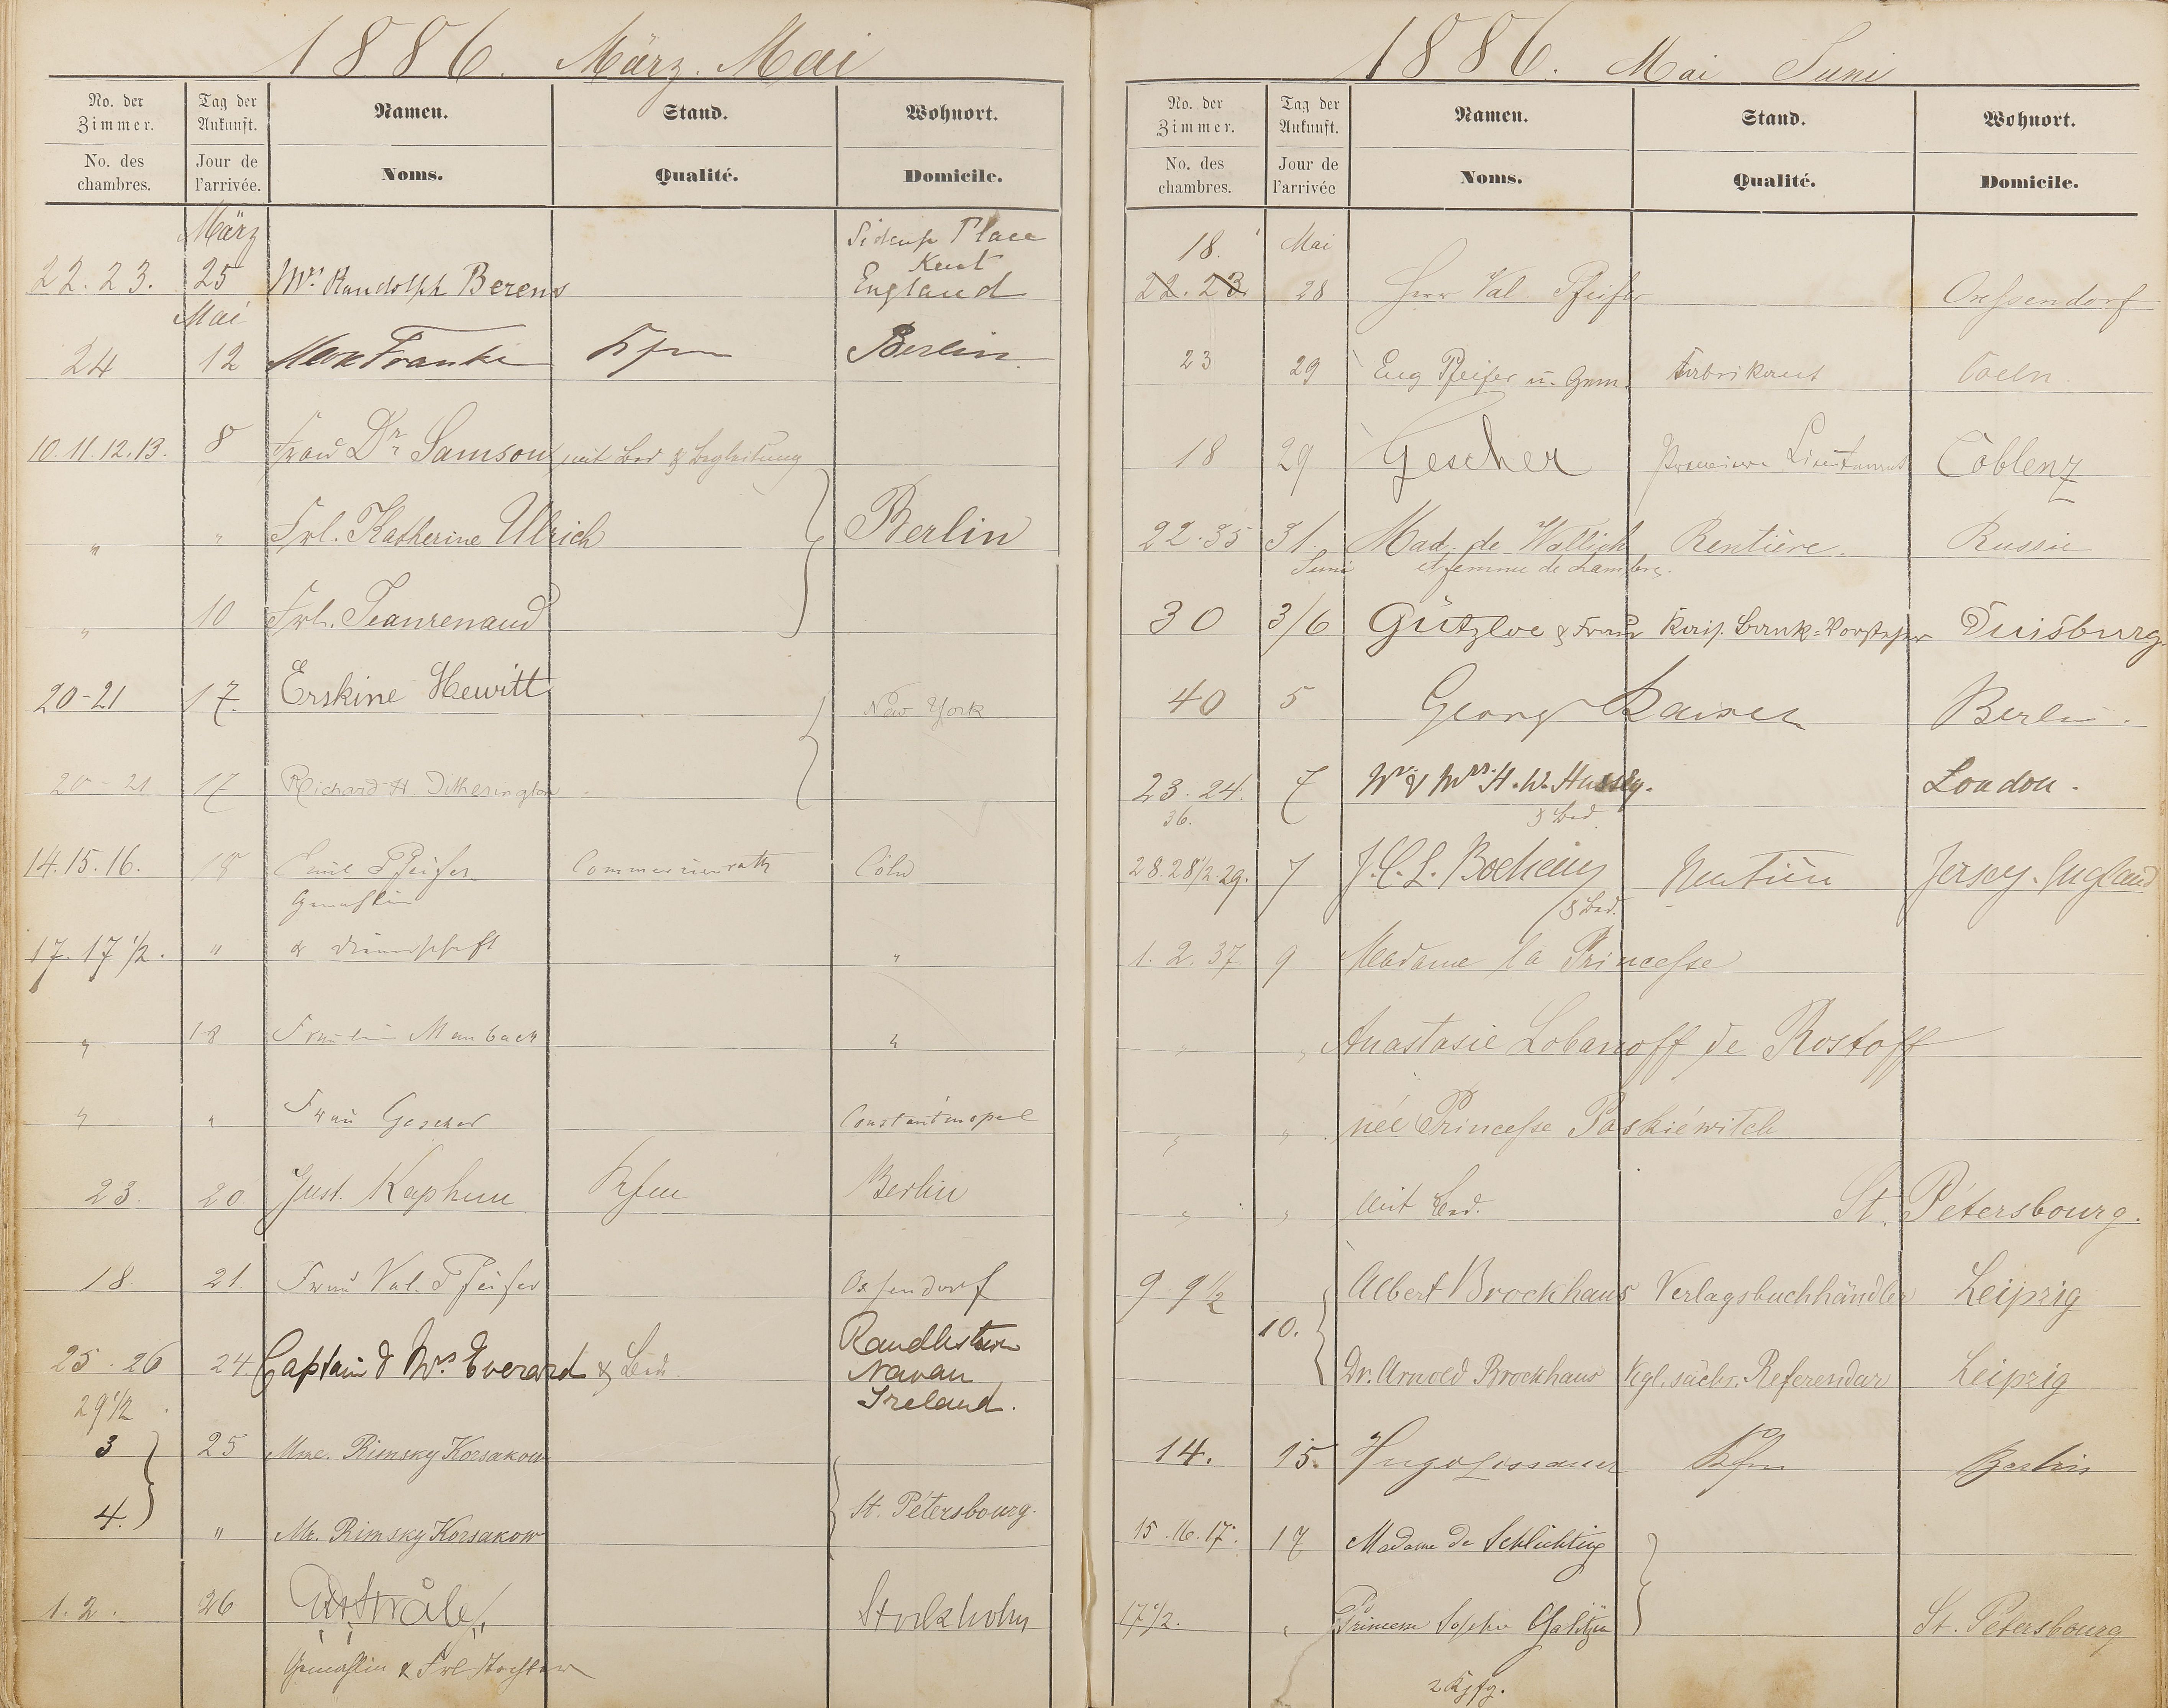 1886. März. Mai
No. der Zimmer. Tag der Ankunft. Namen. Stand. Wohnort.
No. des chambres. Jour de l'arrivée. Noms. Qualité. Domicile.
März Place
Kent
22.23. 25 Mrs Randolph Berens England
Mai
24 12 Max Franke Kfm Berlin
10.11.12.13. 8 Frau Dr Samson mit Bed & Begleitung
" " Frl. Katherine Ulrich Berlin
" 10 Frl. Jeanrenaud
20-21 17. Erskine Hewitt New York
20-21 17 Richard H
14.15.16. 18 Emil Pfeifer Commerzienrath Cöln
Gemahlin
17. 17 1/2. " & Dienerschaft "
" 18 Fräulein "
" " Frau Gescher Constantinopel
23. 20 Just. Kfm Berlin
18. 21. Frau Val. Pfeifer Ossendorf
25.26 24. Captain & Mrs Everard &
Navan
29 1/2 Ireland.
3 25 Mme. Rimsky Korsakow
4. St. Pétersbourg.
" Mr. Rimsky Korsakow
1.2. 26 Stockholm
Gemahlin & Frl Tochter
1886. Mai Juni
No. der Zimmer. Tag der Ankunft. Namen. Stand. Wohnort.
No. des chambres. Jour de l'arrivée Noms. Qualité. Domicile.
18. Mai
22.23. 28 Herr Val. Pfeifer Ossendorf
23 29 Eug Pfeifer u. Gem. Fabrikant Coeln.
18 29 Gescher Premier Lieutenant Coblenz
22.35 31. Mad. de Rentière. Russie
Juni et femme de chambre.
30 3/6 Gützloe & Frau Kais. Bank-Vorsteher Duisburg.
40 5 Georg Kaiser Berlin.
23.24. 7 Mr & Mrs H.W. Hussey. London.
36. & Bed.
28.28 1/2.29. 7 J.C.L. Rentier Jersey. England
& Bed.
1.2.37 9 Madame la Princesse
" " Anastasie Lobanoff de Rostoff
" " née Princesse Paskiéwitch
" " mit Bed. St. Pétersbourg.
9 9 1/2 Albert Brockhaus Verlagsbuchhändler Leipzig
10.
Dr. Arnold Brockhaus Kgl. sächs. Referendar Leipzig
14. 15. Hugo Kfm Berlin
15.16.17. 17 Madame de Schlichting
17 1/2. " Princesse Sophie Galitzin St. Pétersbourg